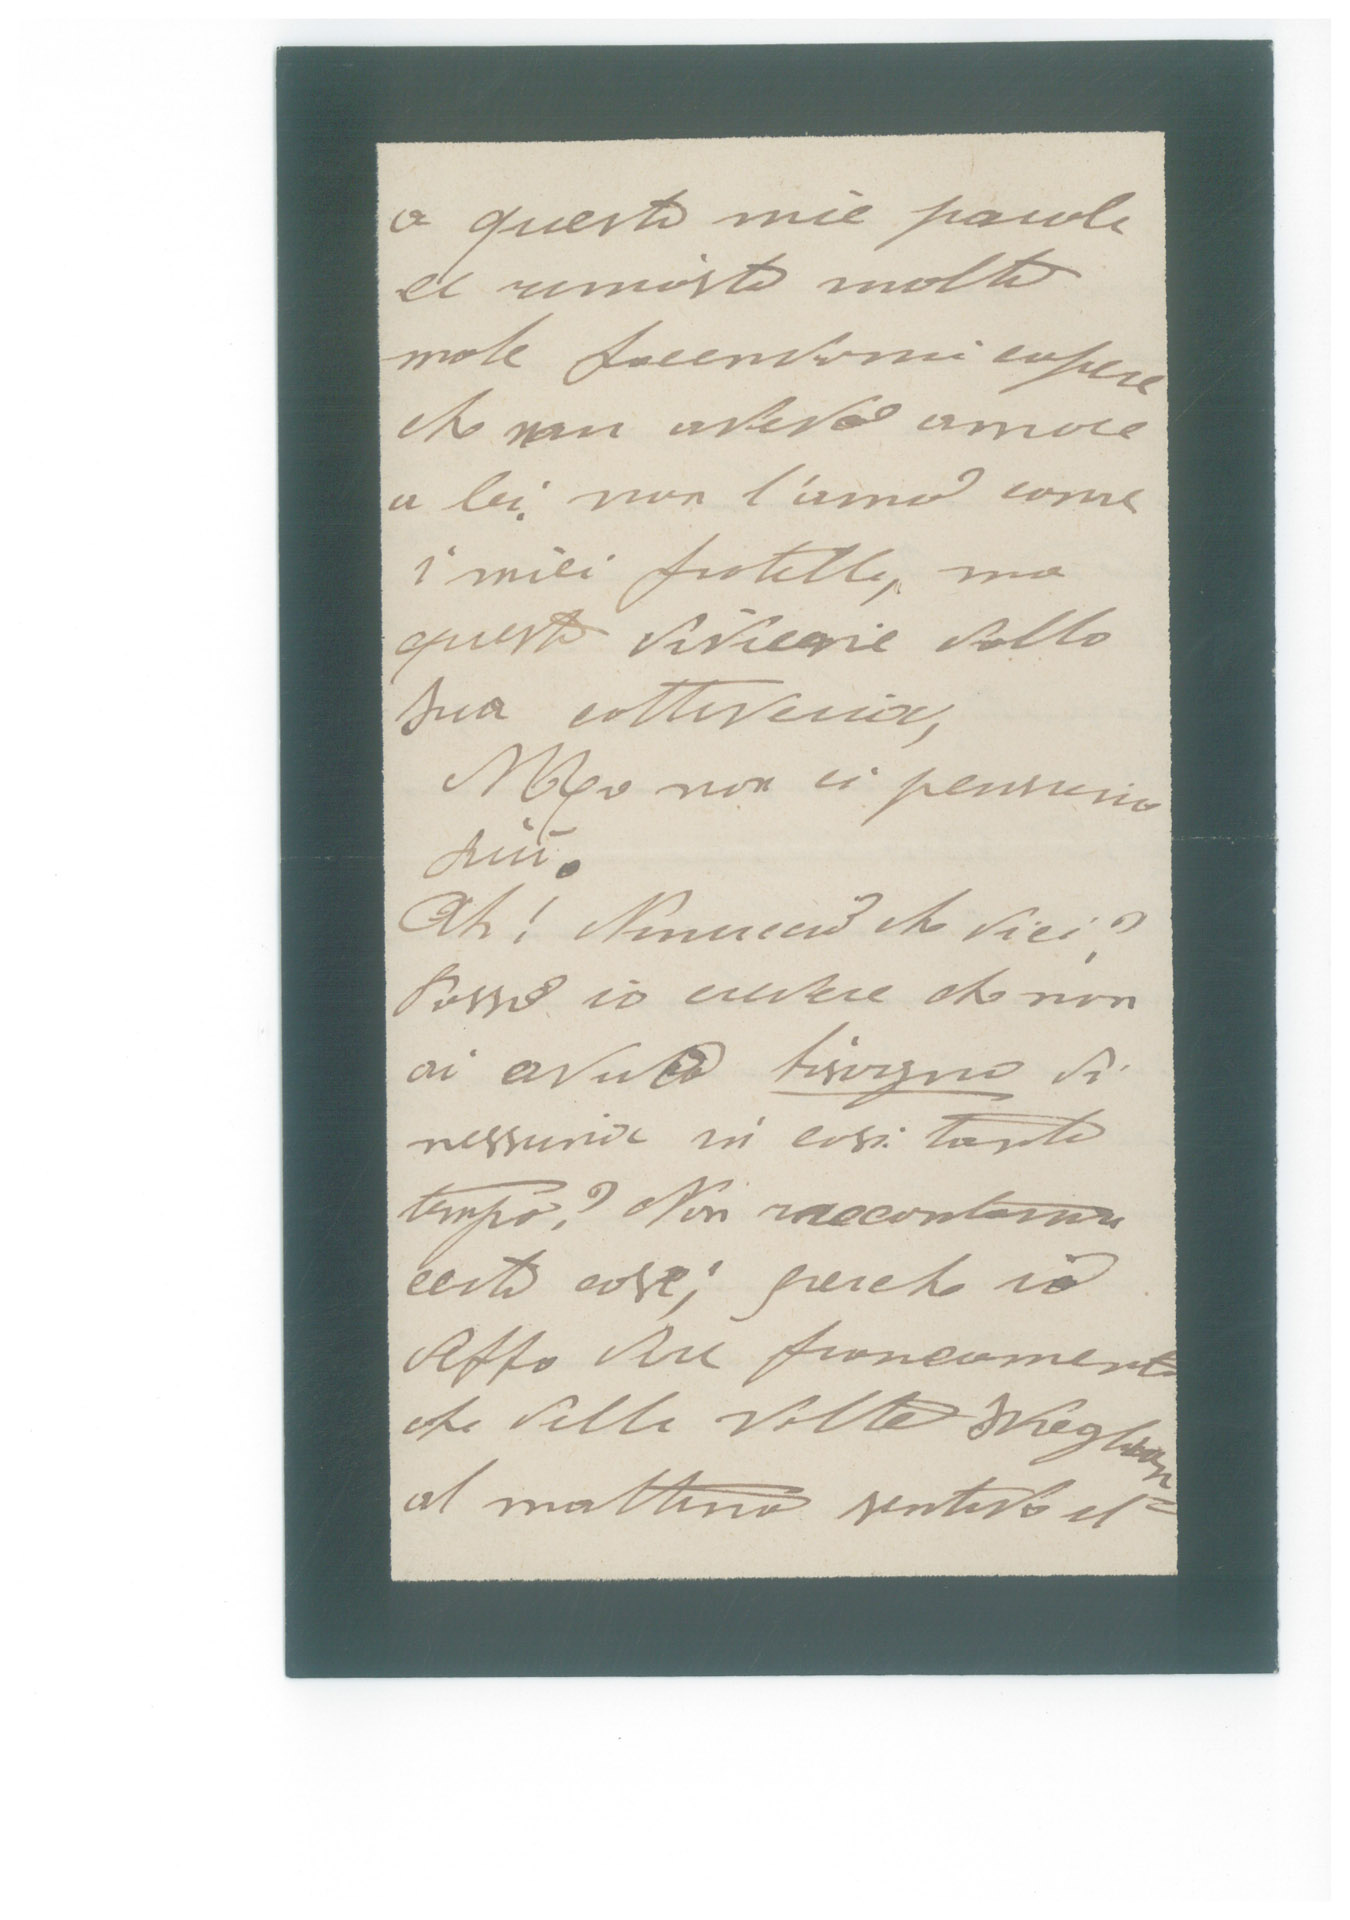 a queste mie parole
ei rimasto molto
male facendomi capire
che non avevo amore
a lei, non l'amo come
i miei fratelli, ma
questo diviene dalla
sua cattiveria,
non ci pensiamo
più.
Ah! Nenuccio che dici?
Posso io credere che non
ai avuto bisogno di
nessuna in così tanto
tempo? Non raccontarmi
certe cose; perchè io
devo dire francamente
che delle volte sveglian
al mattino sentivo il=